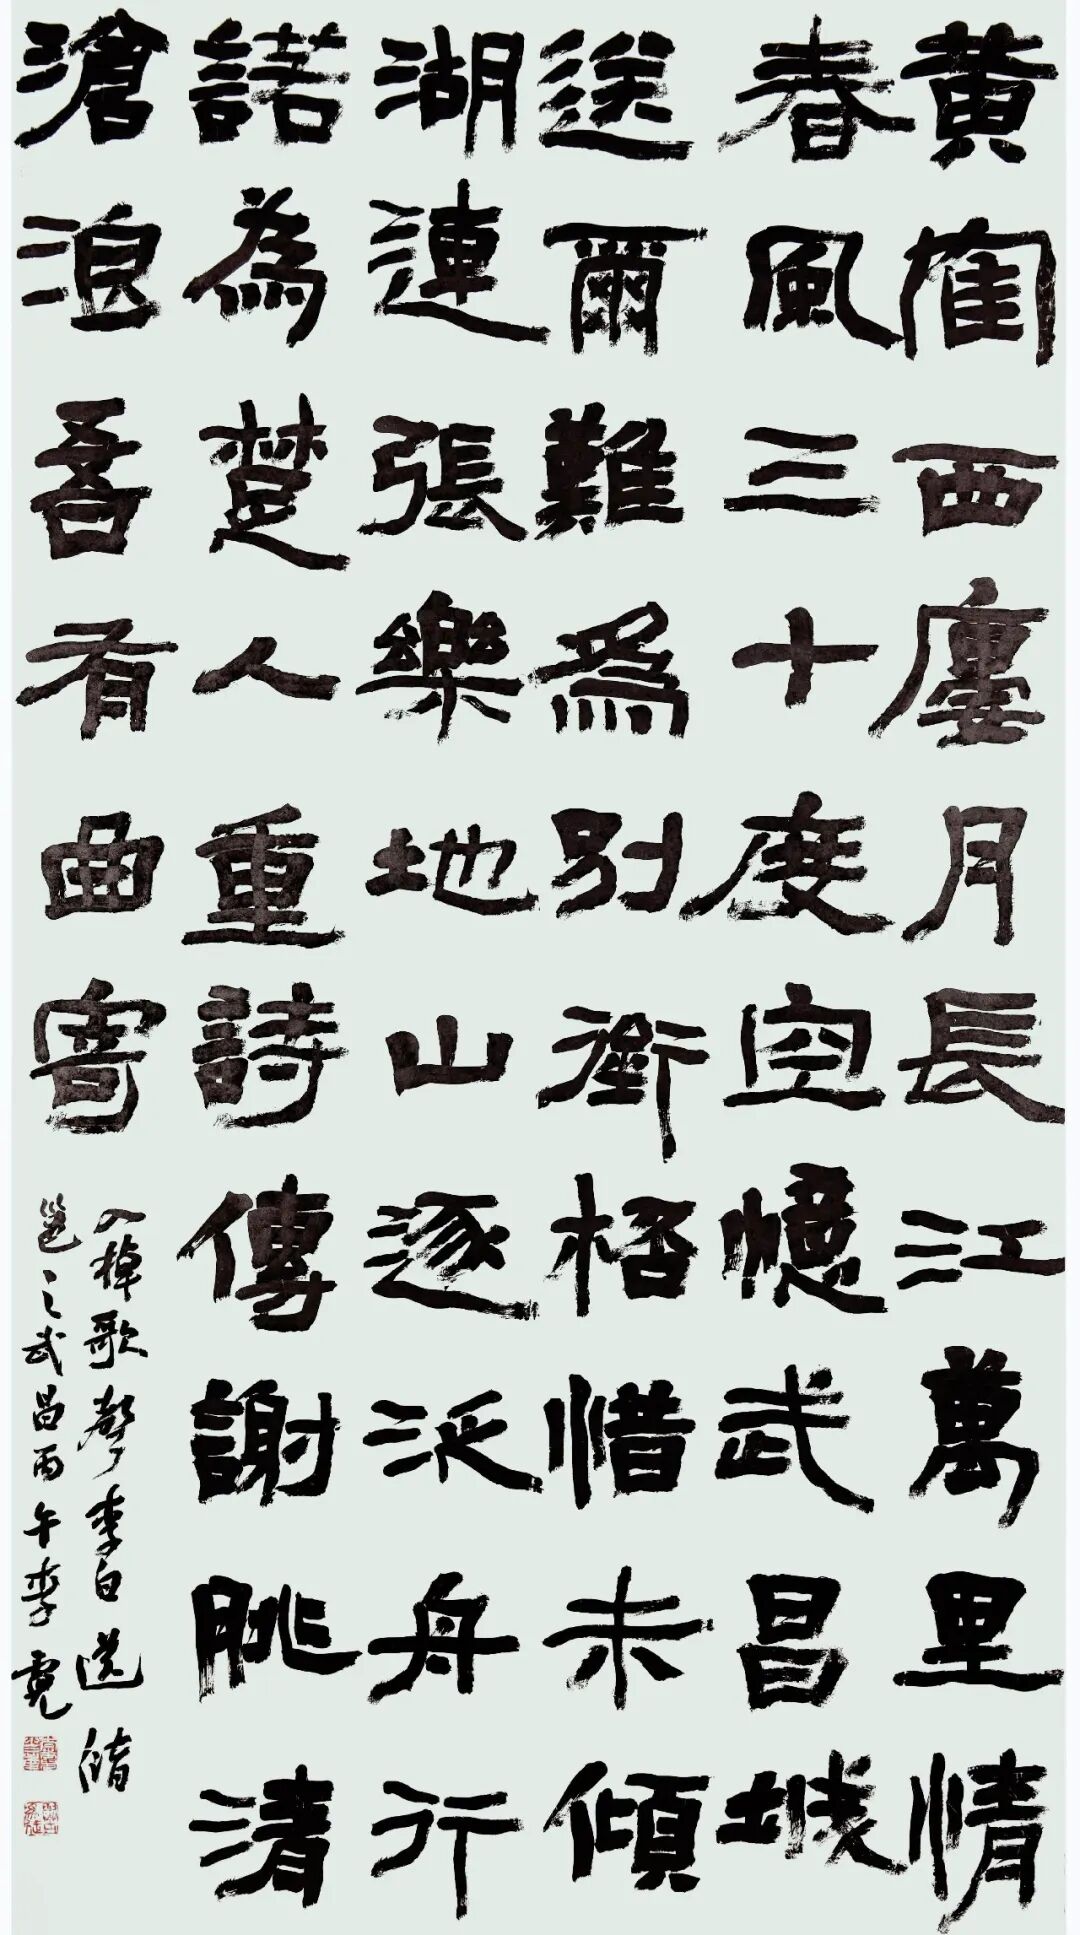 黄隺西廔月長江萬里情
春風三十度空憶武昌城
送爾難爲別銜桮惜未傾
湖連張樂地山逐泛舟行
諾為楚人重詩傳謝朓清
滄浪吾有曲寄
入棹歌聲李白送儲
邕之武昌丙午李霓